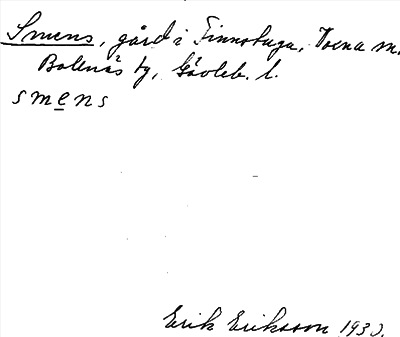 Smens, gård i Finnstuga, Voxna sn.
Bollnäs tg, Gävleb. l.
smens
Erik Eriksson 1930.